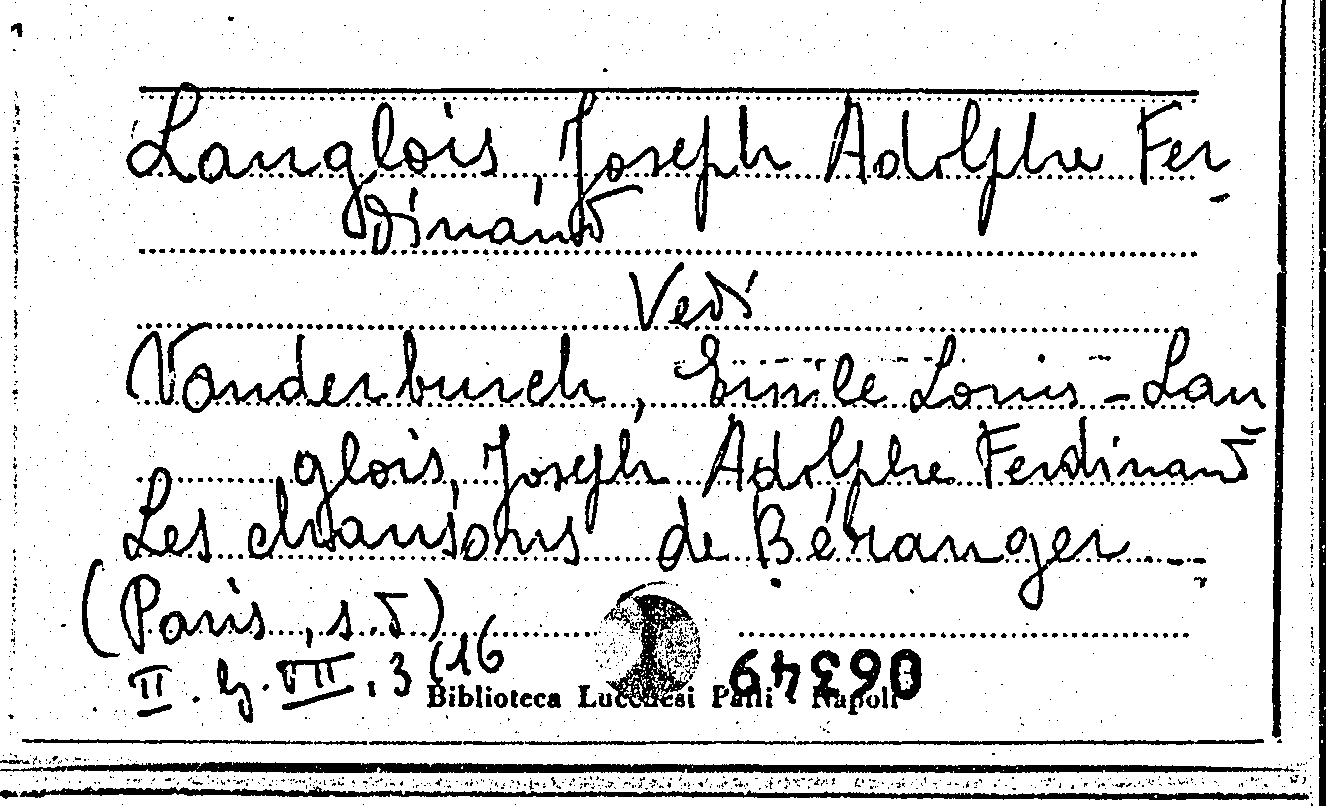 Langlois, Joseph Adolphe Fer-
dinand
Vedi
Vanderburch, Emile Louis - Lan-
glois, Joseph Adolphe Ferdinand
Les chansons de Béranger
(Paris, s.d)
II. G. VII. 3 (16
Biblioteca Lucchesi Palli Napoli
06349